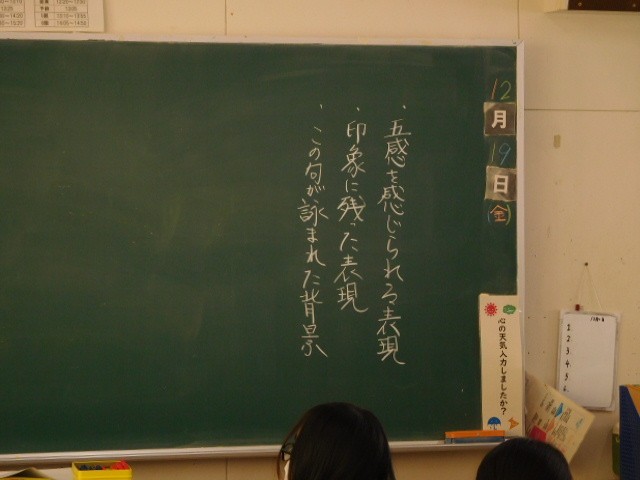 12
月
19
日
(金)
・五感を感じられる表現
・印象に残った表現
・この句が詠まれた背景
心の天気入力しましたか?
1.
2.
3.
4.
5.